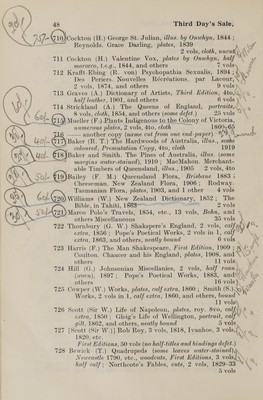 48 Third Day's Sale,
710 Cockton (H.) George St. Julian, illus. by Onwhyn, 1844 ;
Reynolds. Grace Darling, plates, 1839
2 vols, cloth, uncut
711 Cockton (H.) Valentine Vox, plates by Onwhyn, half
morocco, t.e.g., 1844, and others vols
712 Krafft-Ebing (R. von) Psychopathia Sexualis, 1894 ;
Des Periers. Nouvelles Récréations, par Lacour,
2 vols, 1874, and others 9 vols
713 Graves (A.) Dictionary of Artists, Third Edition, 4to,
half leather, 1901, and others 6 vols
714 Strickland (A.) The Queens of England, portraits,
8 vols, cloth, 1854, and others (some defect.) 25 vols
715 Mueller (F.) Plants Indigenous to the Colony of Victoria,
numerous plates, 2 vols, 4to, cloth 1860-65
716 — another copy (name cut from one end-paper)
717 Baker (R. T.) The Hardwoods of Australia, illus. some
coloured, Presentation Copy, 4to, cloth 1919
718 Baker and Smith. The Pines of Australia, illus. (some
margins water-stained), 1910 ; MacMahon. Merchant-
able Timbers of Queensland, illus., 1905 2 vols, 4to
719 Bailey (F. M.) Queensland Flora, Brisbane 1883 ;
Cheeseman. New Zealand Flora, 1906 ; Rodway.
Tasmanian Flora, plates, 1903, and 1 other 4 vols
720 Williams (W.) New Zealand Dictionary, 1852 ; The
Bible, in Tahiti, 1863 2 vols
721 Marco Polo's Travels, 1854, etc., 13 vols, Bohn, and
others Miscellaneous 35 vols
722 Thornbury (G. W.) Shakspere's England, 2 vols, calf
extra, 1856 ; Pope's Poetical Works, 2 vols in 1, calf
extra, 1863, and others, neatly bound 6 vols
723 Harris (F.) The Man Shakespeare, First Edition, 1909 ;
Coulton. Chaucer and his England, plates, 1908, and
others 11 vols
724 Hill (G.) Johnsonian Miscellanies, 2 vols, half roan
(worn), 1897 ; Pope's Poetical Works, 1882, and
others 16 vols
725 Cowper (W.) Works, plates, calf extra, 1860 ; Smith (S.)
Works, 2 vols in 1, calf extra, 1860, and others, bound
11 vols
726 Scott (Sir W.) Life of Napoleon, plates, roy. 8vo, calf
extra, 1850 ; Gleig's Life of Wellington, portrait, calf
gilt, 1862, and others, neatly bound 5 vols
727 [Scott (Sir W.)] Rob Roy, 3 vols, 1818, Ivanhoe, 3 vols,
1820, etc.
First Editions, 50 vols (no half-titles and bindings defec.)
728 Bewick (T.) Quadrupeds (some leaves water-stained),
Newcastle 1790, etc., woodcuts, First Editions, 3 vols,
half calf ; Northcote's Fables, cuts, 2 vols, 1829-33
5 vols